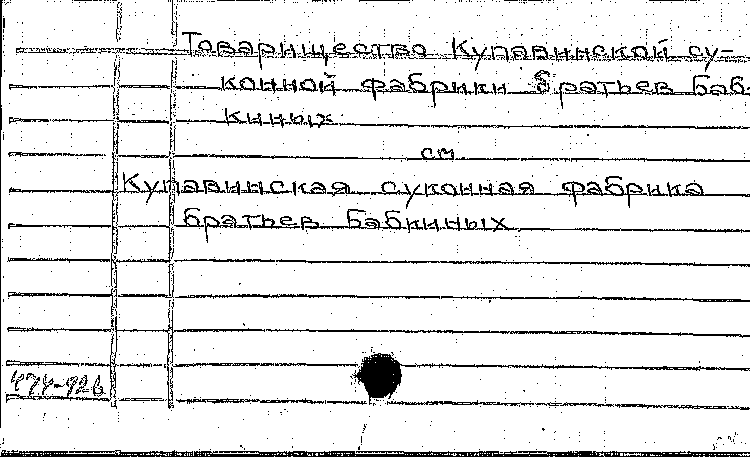 Товарищество Купавинской су-
конной фабрики братьев Баб-
киных
см
Купавинская суконная фабрика
братьев Бабкиных
474-926